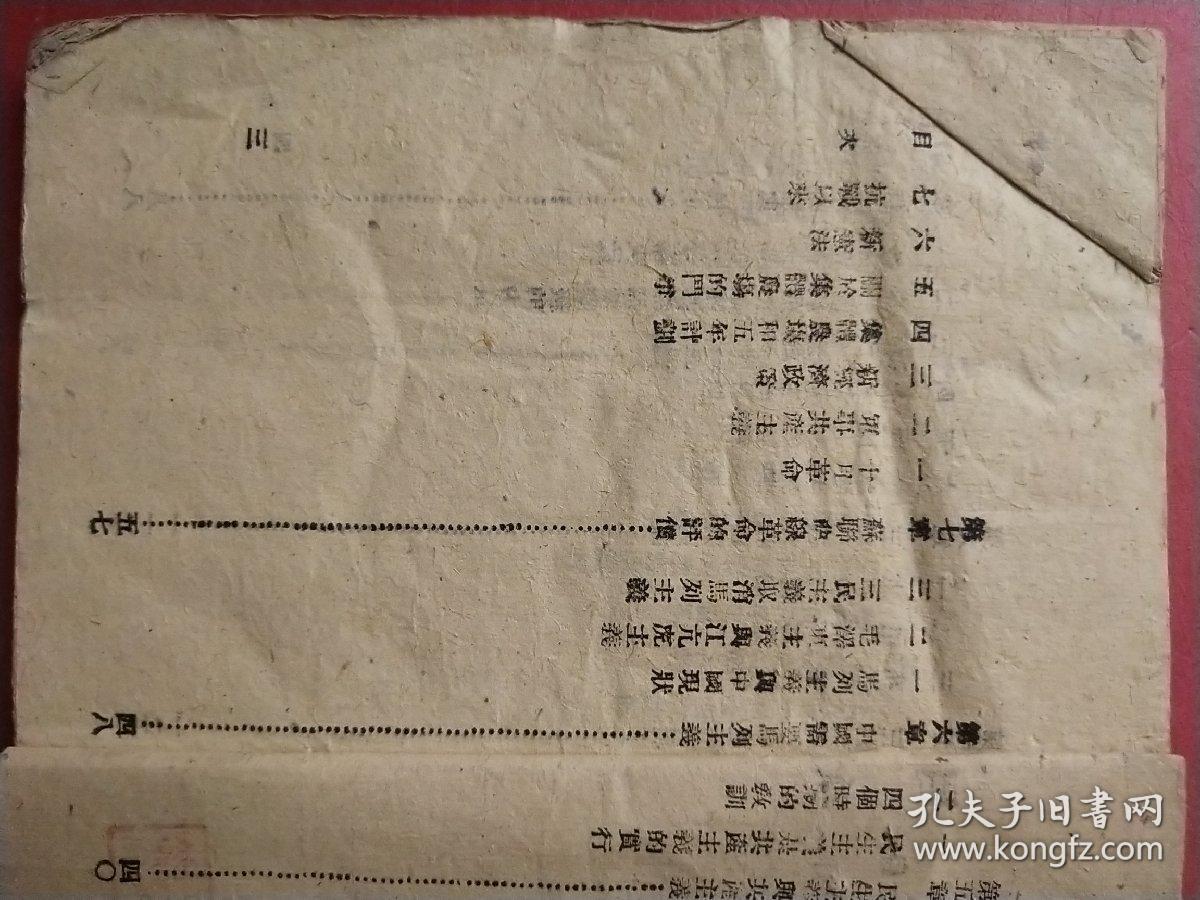 第五章 民生主義與共產主義……四〇
一 民生主義是共產主義的實行
二 四個時期的教訓
第六章 中國需要馬列主義……四八
一 馬列主義與中國現狀
二 毛澤東主義與江亢虎主義
三 三民主義取消馬列主義
第七章 蘇聯曲線革命的評價……五七
一 十月革命
二 軍事共產主義
三 新經濟政策
四 集體農場和五年計劃
五 關於集體農場的鬥爭
六 新憲法
七 抗戰以來
目次 三
孔夫子旧书网
www.kongfz.com